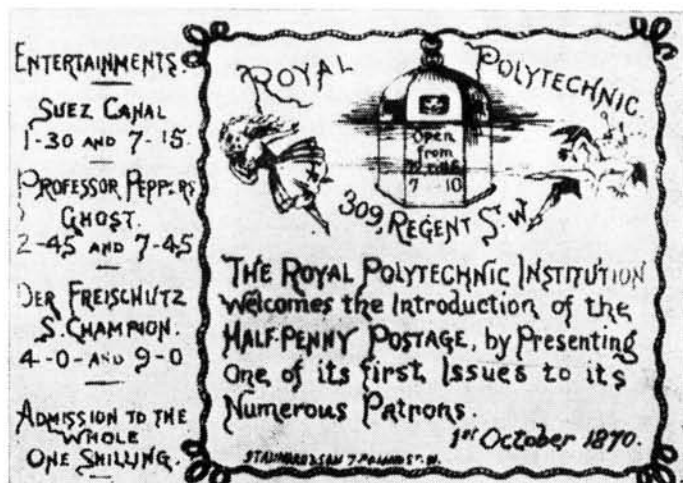 ENTERTAINMENTS.
SUEZ CANAL
1-30 AND 7-15.
PROFESSOR PEPPERS
GHOST.
2-45 AND 7-45
DER FREISCHUTZ
S. CHAMPION.
4-0- AND 9-0
ADMISSION TO THE
WHOLE
ONE SHILLING.
ROYAL POLYTECHNIC.
Open
from
7 10
309, REGENT S. W.
THE ROYAL POLYTECHNIC INSTITUTION
Welcomes the Introduction of the
HALF-PENNY POSTAGE, by Presenting
One of its first Issues to its
Numerous Patrons.
1st October 1870.